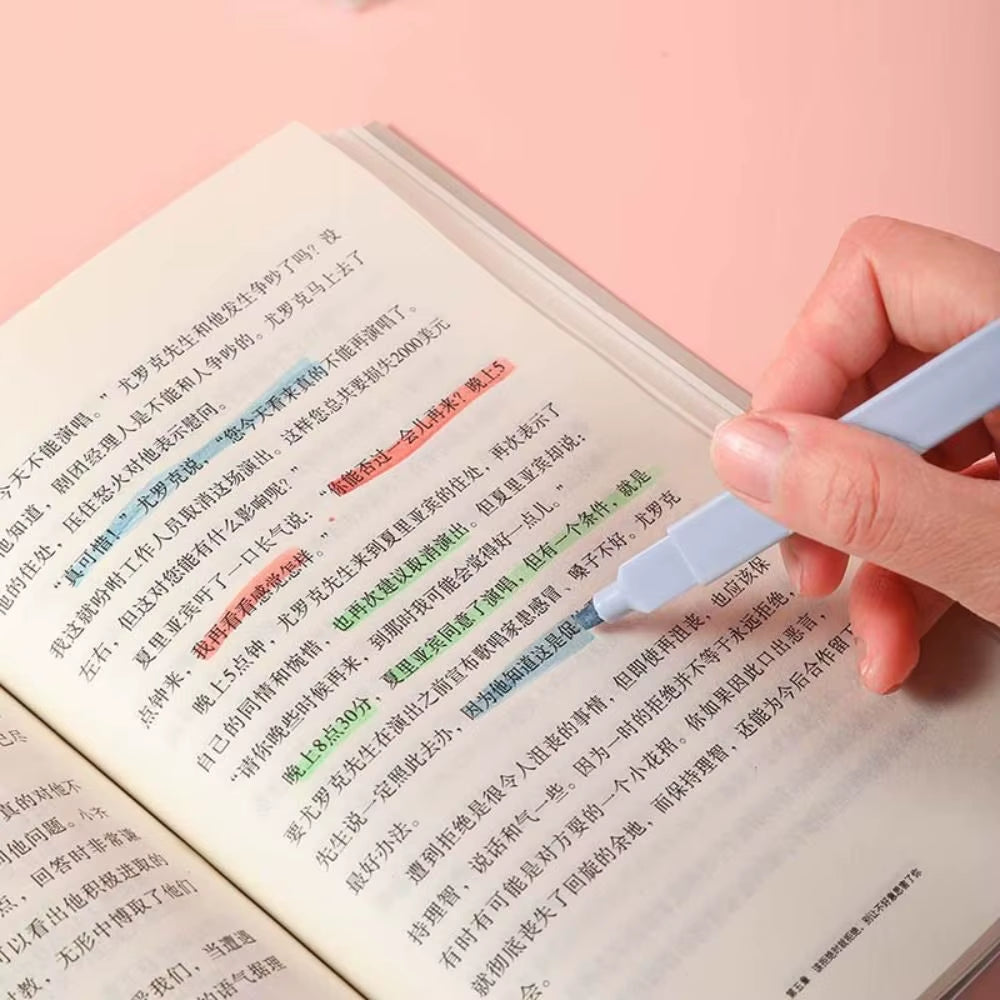 已尽
真的对他不
他问题。小齐
点，回答时非常谦
可以看出他积极进取的
教，无形中博取了他们
我们，当遭遇
的语气据理
今天不能演唱。”尤罗克先生和他发生争吵了吗？没
他知道，剧团经理人是不能和人争吵的。尤罗克马上去了
他的住处，压住怒火对他表示慰问。
“真可惜！”尤罗克说，“您今天看来真的不能再演唱了。
我这就吩咐工作人员取消这场演出。这样您总共要损失2000美元
左右，但这对您能有什么影响呢？”
夏里亚宾吁了一口长气说：“你能否过一会儿再来？晚上5
点钟来，我再看看感觉怎样。”
晚上5点钟，尤罗克先生来到夏里亚宾的住处，再次表示了
自己的同情和惋惜，也再次建议取消演出。但夏里亚宾却说：
“请你晚些时候再来，到那时我可能会觉得好一点儿。”
晚上8点30分，夏里亚宾同意了演唱，但有一个条件，就是
要尤罗克先生在演出之前宣布歌唱家患感冒、嗓子不好。尤罗克
先生说一定照此去办，因为他知道这是促
最好办法。
遭到拒绝是很令人沮丧的事情，但即使再沮丧，也应该保
持理智，说话和气一些。因为一时的拒绝并不等于永远拒绝，
有时有可能是对方耍的一个小花招。你如果因此口出恶言，
就彻底丧失了回旋的余地，而保持理智，还能为今后合作留了
会。
第五章 该拒绝时就拒绝，别让不好意思害了你